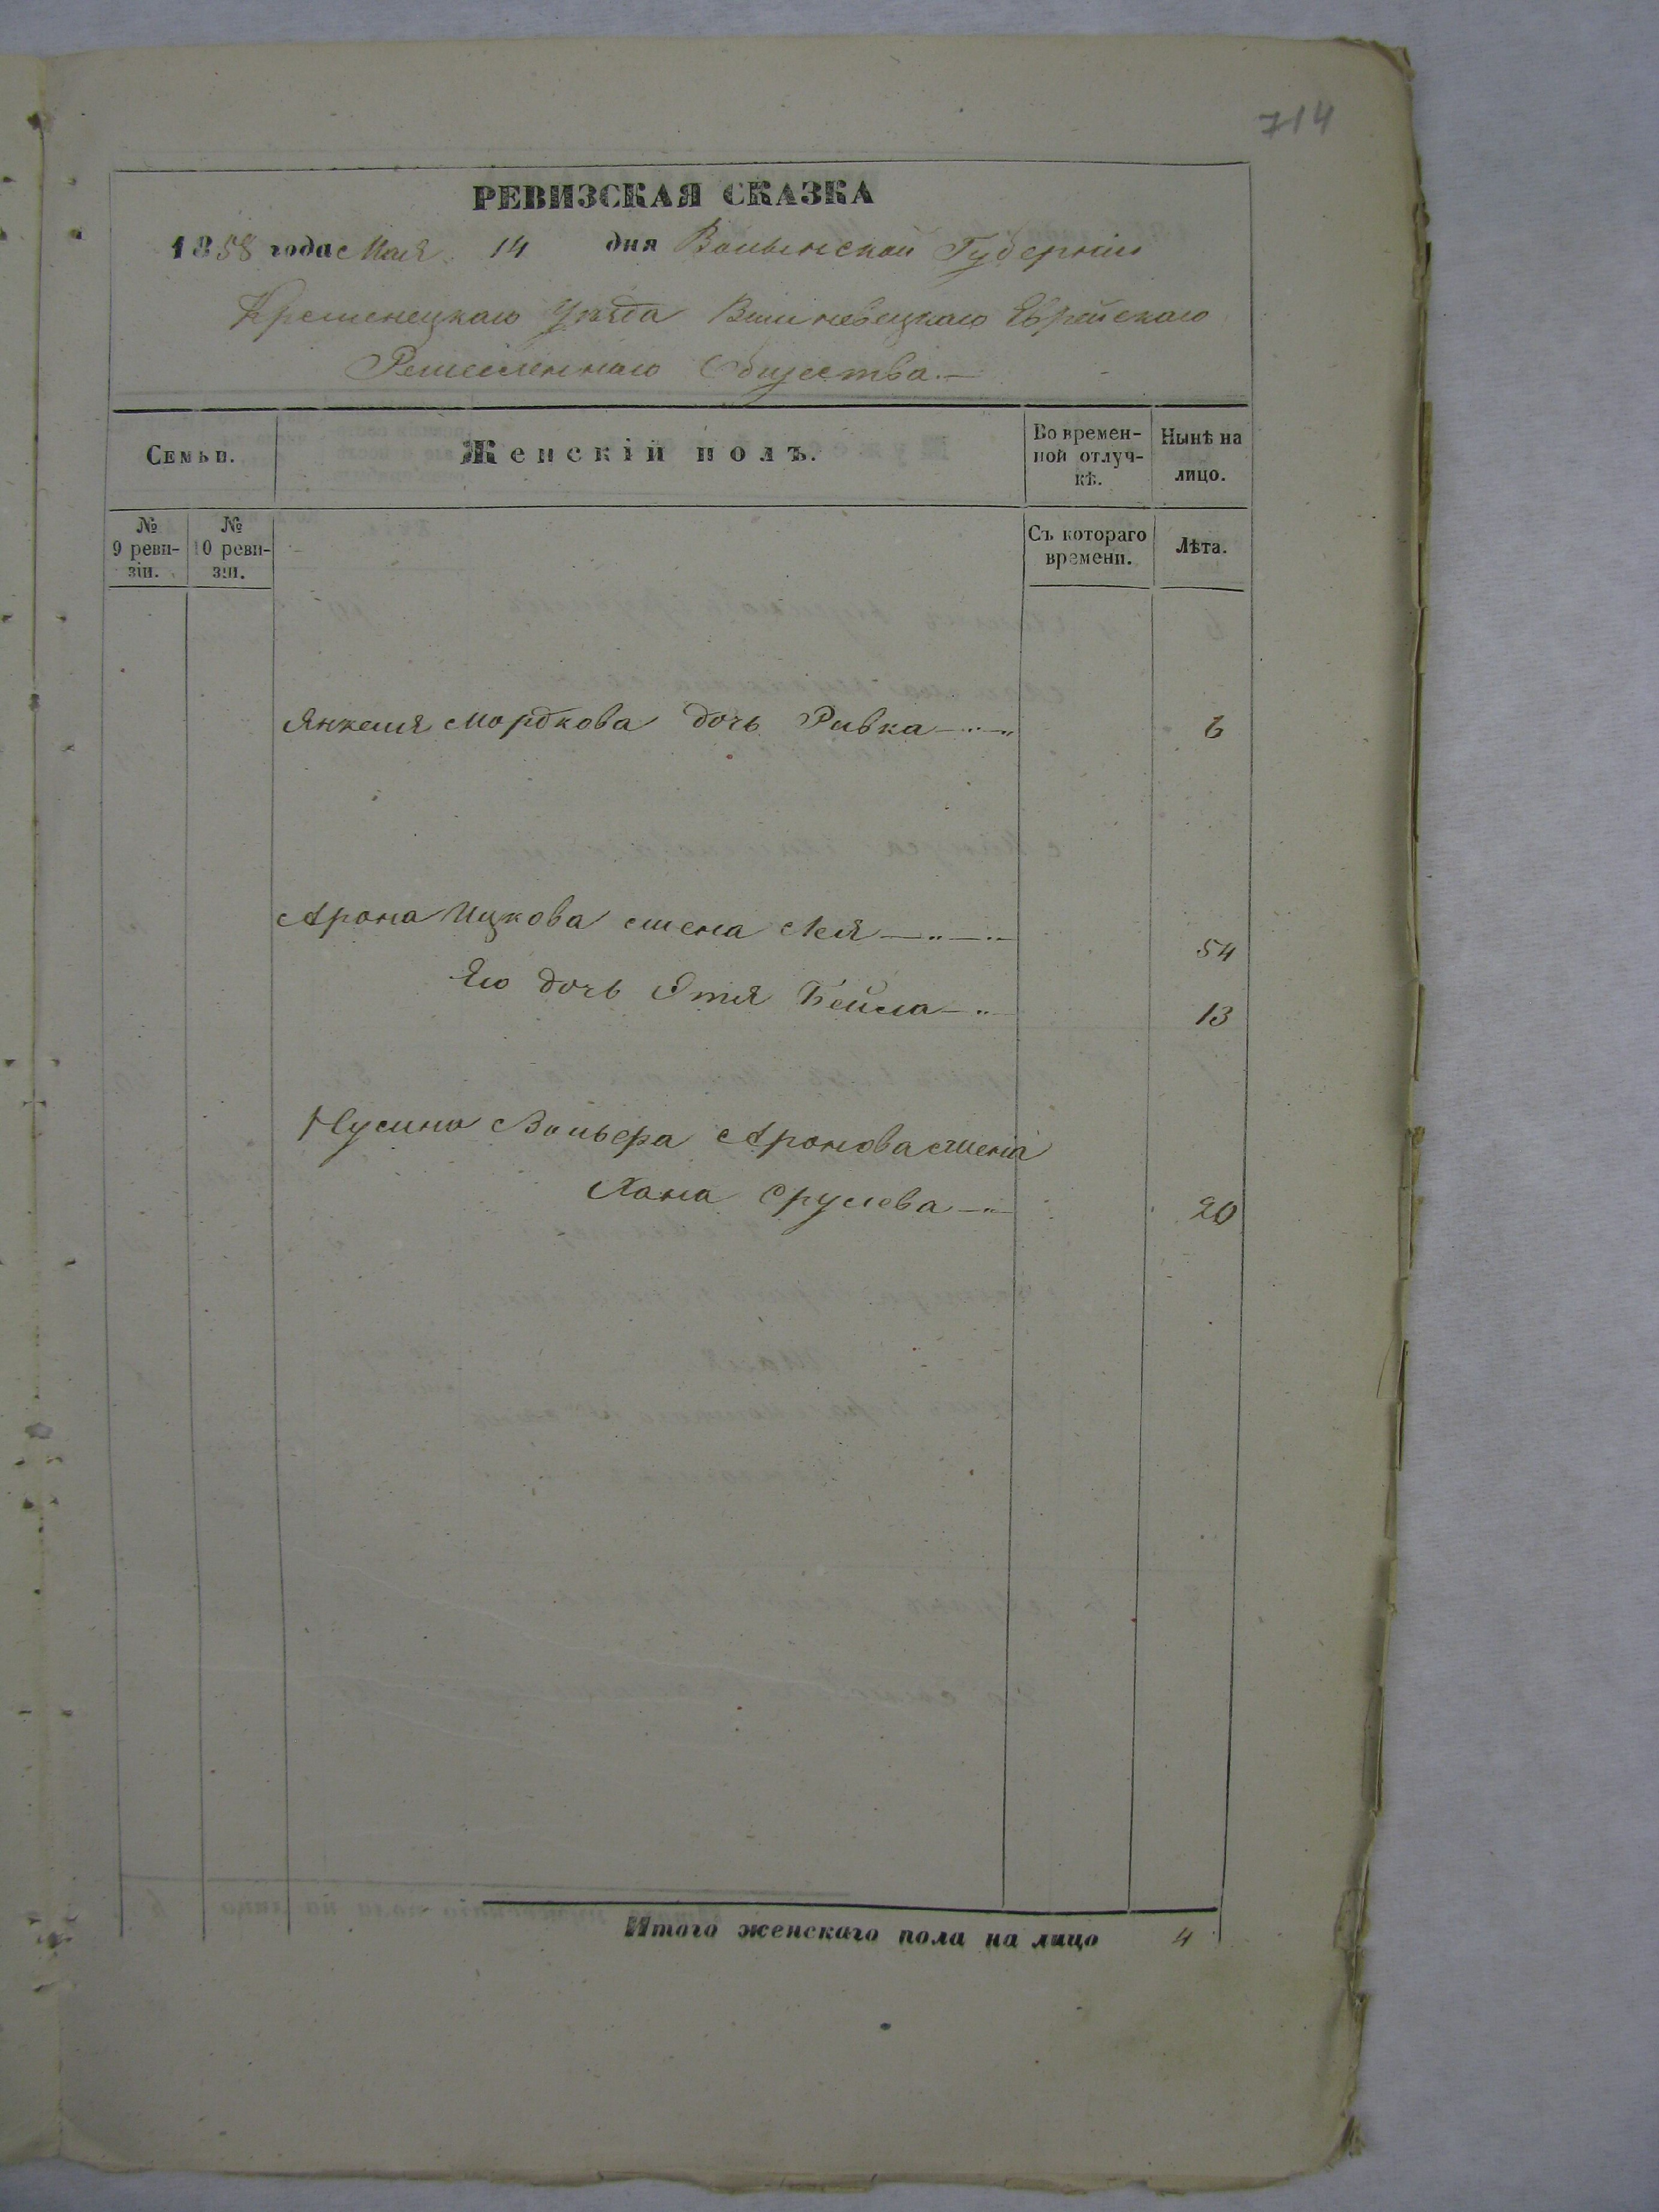 714
РЕВИЗСКАЯ СКАЗКА
1858 года Мая 14 дня Волынской Губерніи
Кременецкаго Уѣзда Вишневецкаго Еврейскаго
Ремесленнаго Общества.—
Семьи. Женскій полъ. Во времен-ной отлуч-кѣ. Нынѣ на лицо.
№ 9 реви-зіи. № 10 реви-зіи. Съ котораго времени. Лѣта.
Янкеля Мордкова дочь Ривка 6
Арона Ицкова жена Лея 54
Его дочь Этя Бейла 13
Нусина Вольфа Аронова жена
Хана Срулева 20
Итого женскаго пола на лицо 4